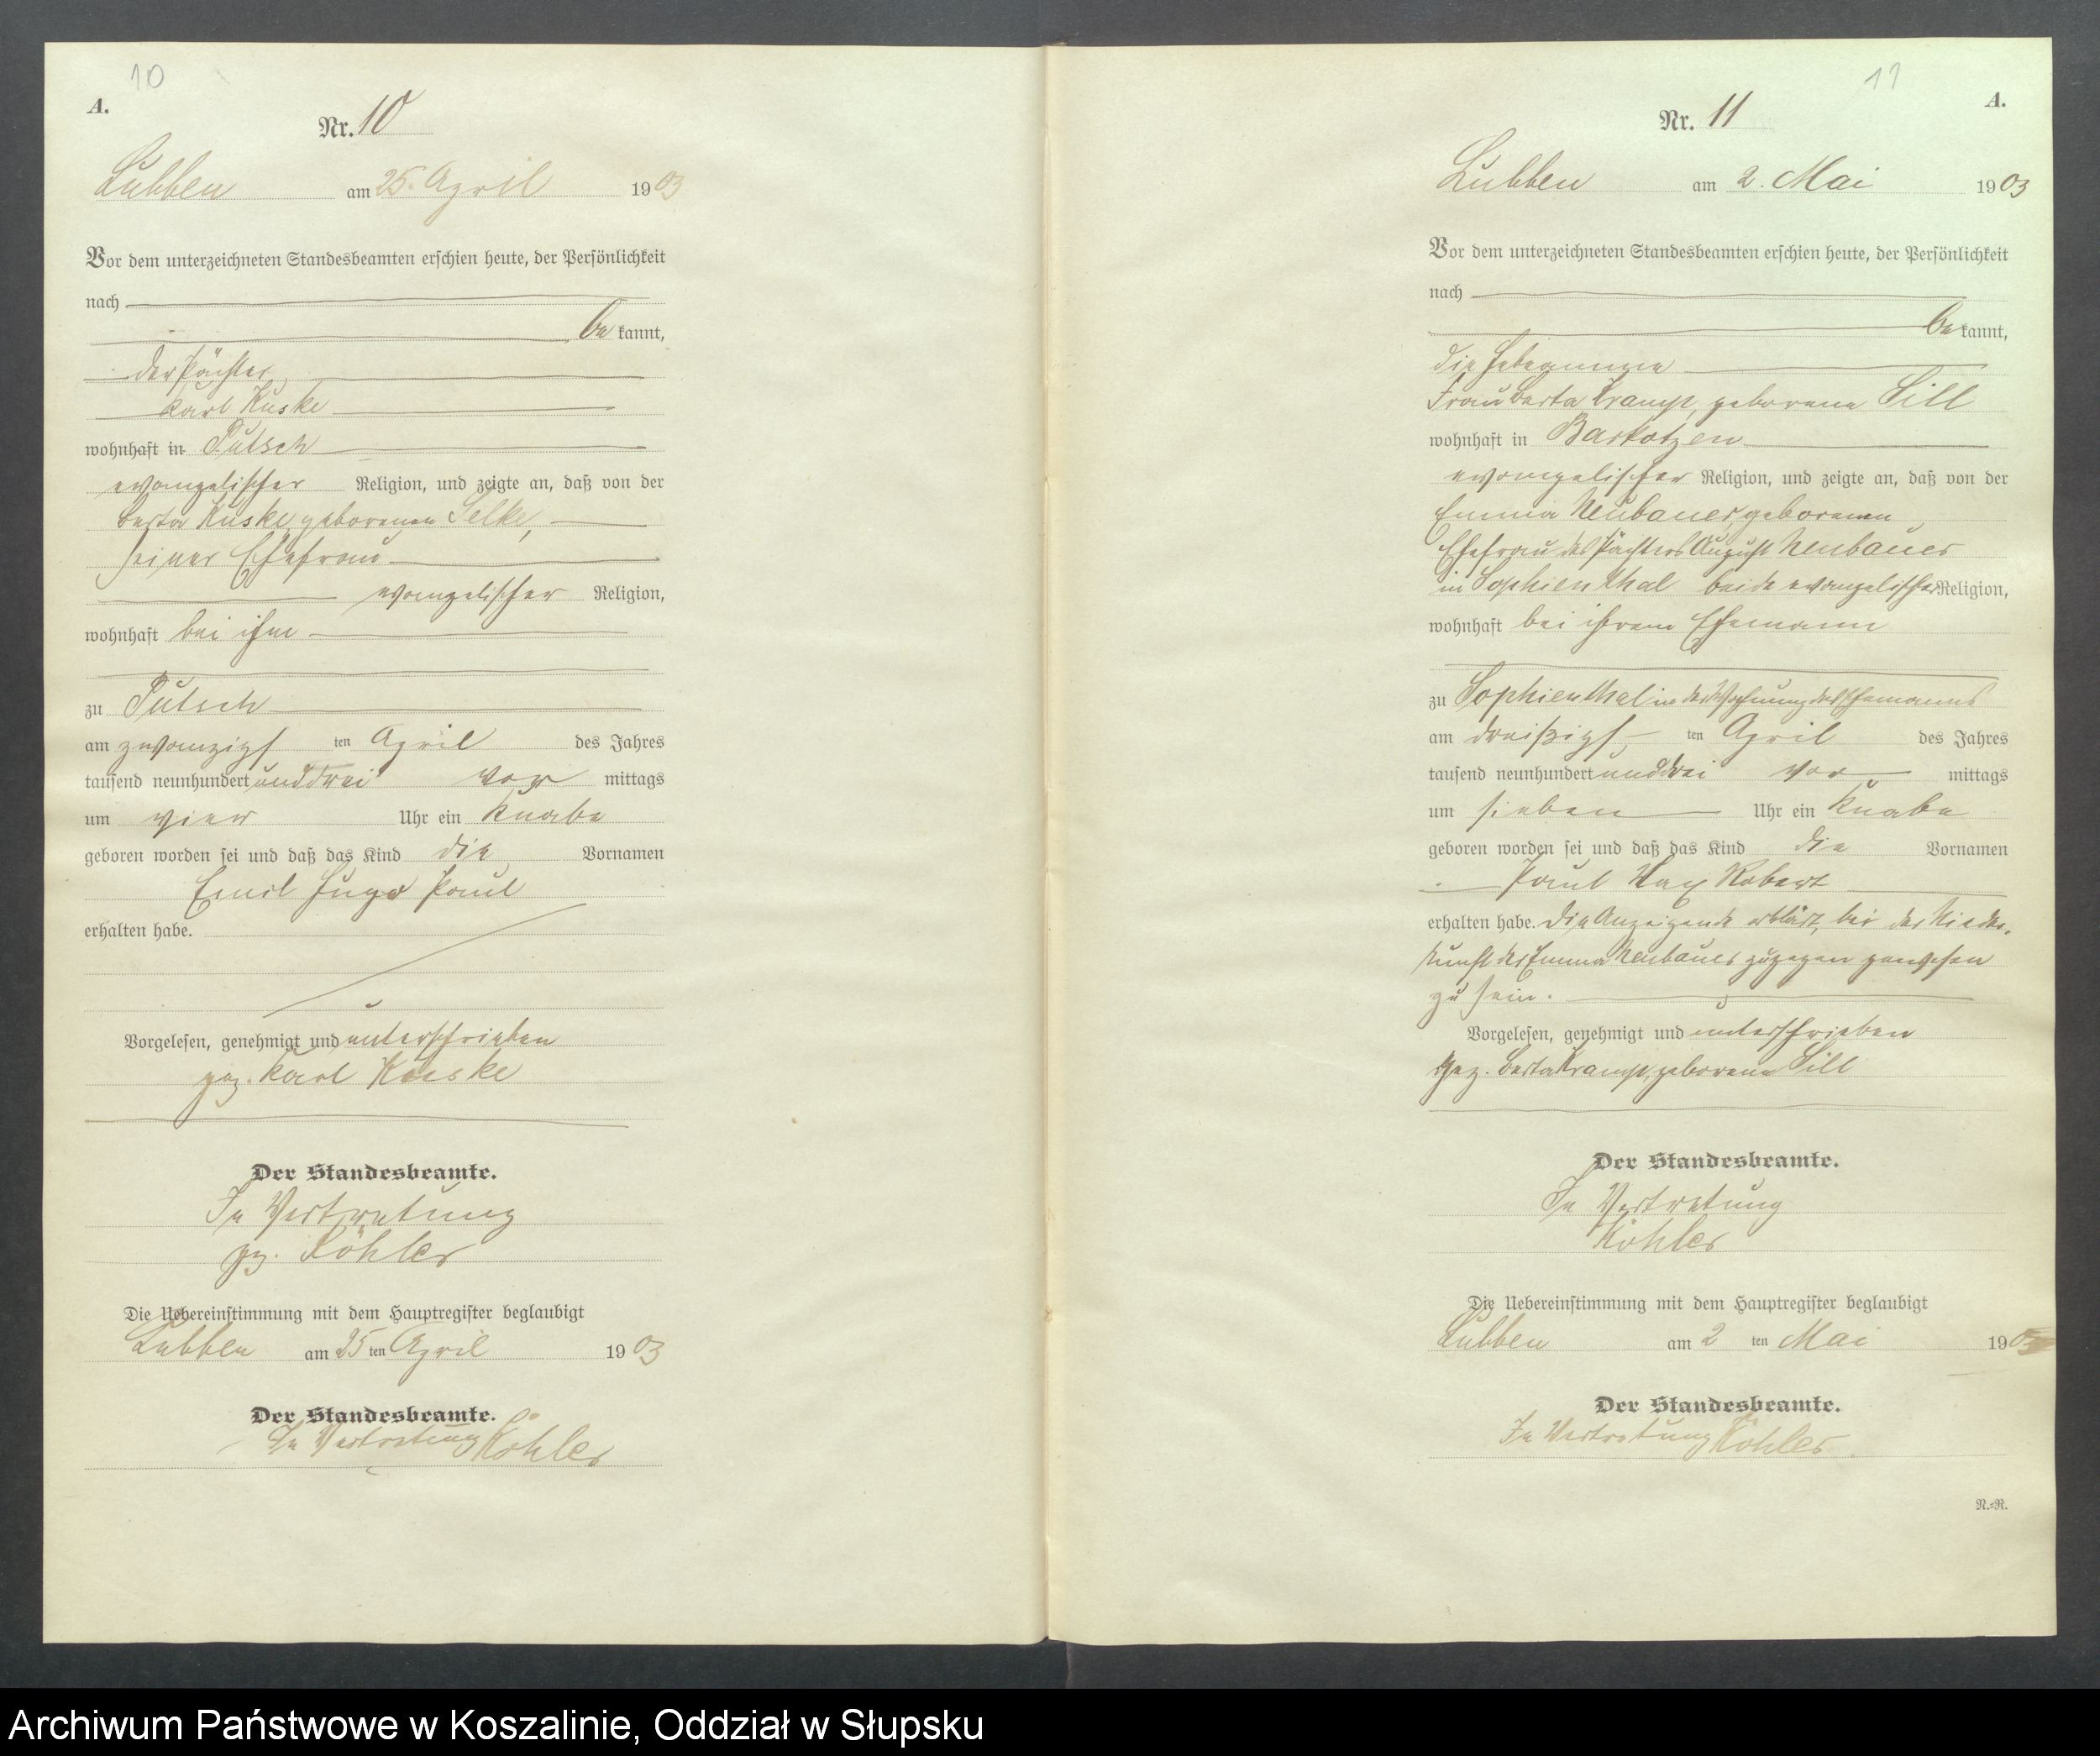 10
A.
Nr. 10
Lubben am 25. April 1903
Vor dem unterzeichneten Standesbeamten erschien heute, der Persönlichkeit
nach
be kannt,
der Pächter
Karl Kuske
wohnhaft in Putsch
evangelischer Religion, und zeigte an, daß von der
Berta Kuske, geborenen Selke,
seiner Ehefrau
evangelischer Religion,
wohnhaft bei ihm
zu Putsch
am zwanzigs ten April des Jahres
tausend neunhundert und drei vor mittags
um vier Uhr ein Knabe
geboren worden sei und daß das Kind die Vornamen
Emil Hugo Paul
erhalten habe.
Vorgelesen, genehmigt und unterschrieben
gez. Karl Kuske
Der Standesbeamte.
In Vertretung
gz. Köhler
Die Uebereinstimmung mit dem Hauptregister beglaubigt
Lubben am 25 ten April 1903
Der Standesbeamte.
In Vertretung Köhler
11
A.
Nr. 11
Lubben am 2. Mai 1903
Vor dem unterzeichneten Standesbeamten erschien heute, der Persönlichkeit
nach
be kannt,
die Hebeamme
Frau Berta Kramp, geborene Sill
wohnhaft in Barkotzen
evangelischer Religion, und zeigte an, daß von der
Emma Neubauer, geborenen
Ehefrau des Pächters August Neubauer
in Sophienthal beide evangelischer Religion,
wohnhaft bei ihrem Ehemann
zu Sophienthal in der Wohnung des Ehemanns
am dreißigs ten April des Jahres
tausend neunhundert und drei vor mittags
um sieben Uhr ein Knabe
geboren worden sei und daß das Kind die Vornamen
Paul Max Robert
erhalten habe. Die Anzeigende erklärt, bei der Nieder-
kunft der Emma Neubauer zugegen gewesen
zu sein.
Vorgelesen, genehmigt und unterschrieben
gez. Berta Kramp, geborene Sill
Der Standesbeamte.
In Vertretung
Köhler
Die Uebereinstimmung mit dem Hauptregister beglaubigt
Lubben am 2 ten Mai 1903
Der Standesbeamte.
In Vertretung Köhler
N.=R.
Archiwum Państwowe w Koszalinie, Oddział w Słupsku